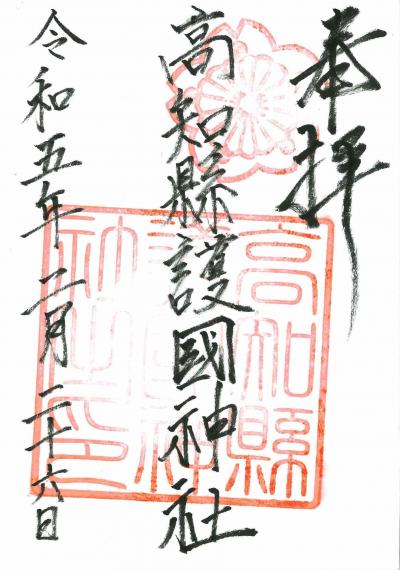 奉拝
高知縣護國神社
令和五年二月二十六日
高知縣
護國神
社之印